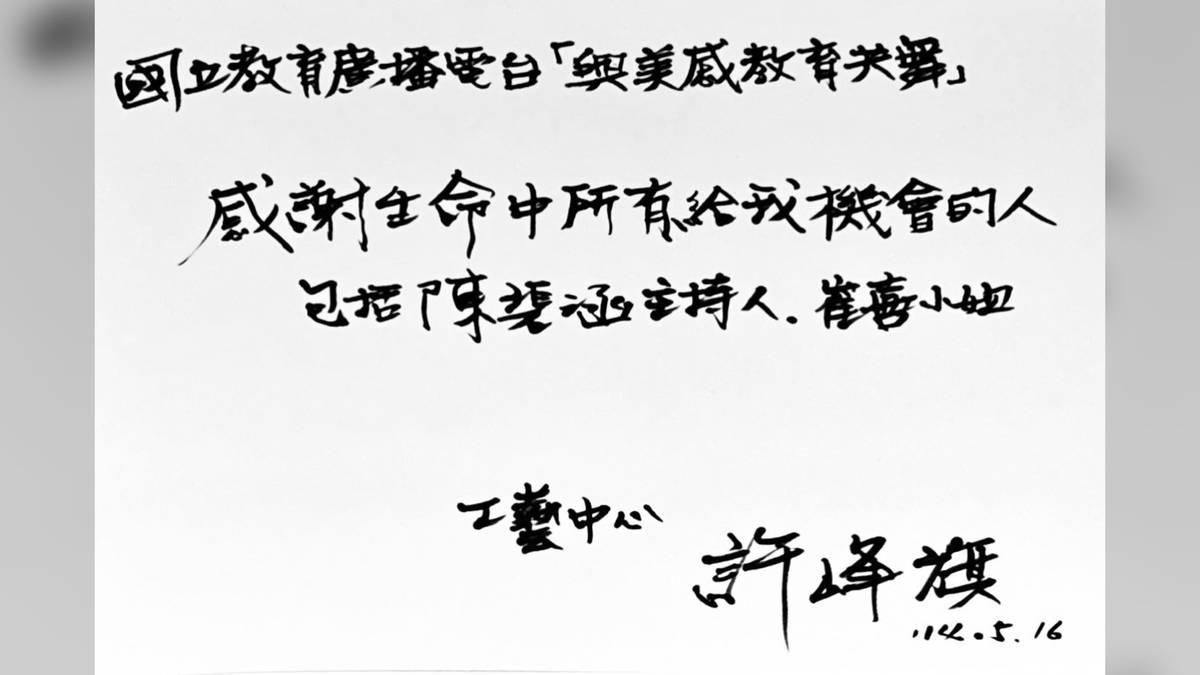 國立教育廣播電台「與美感教育共舞」
感謝生命中所有給我機會的人
包括陳斐涵主持人.崔喜小姐
工藝中心
許峰旗
114.5.16